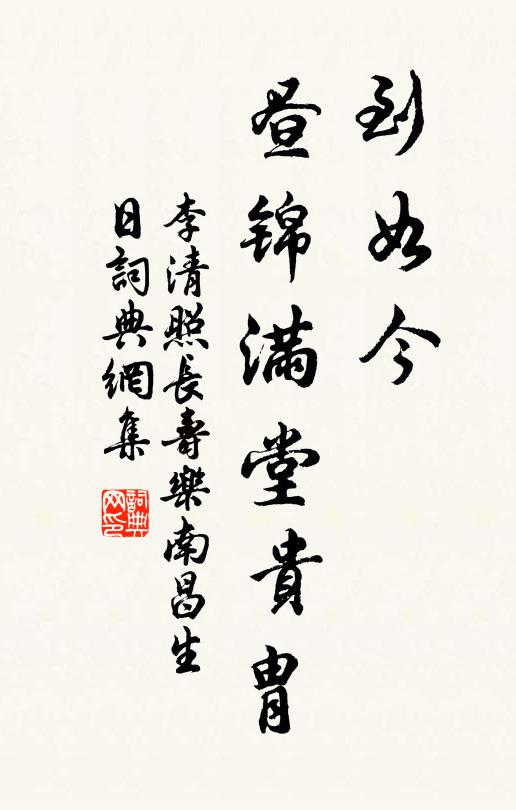 到如今
昼锦满堂貴胄
李清照長壽樂南昌生
日詞典網集
詞典
网印